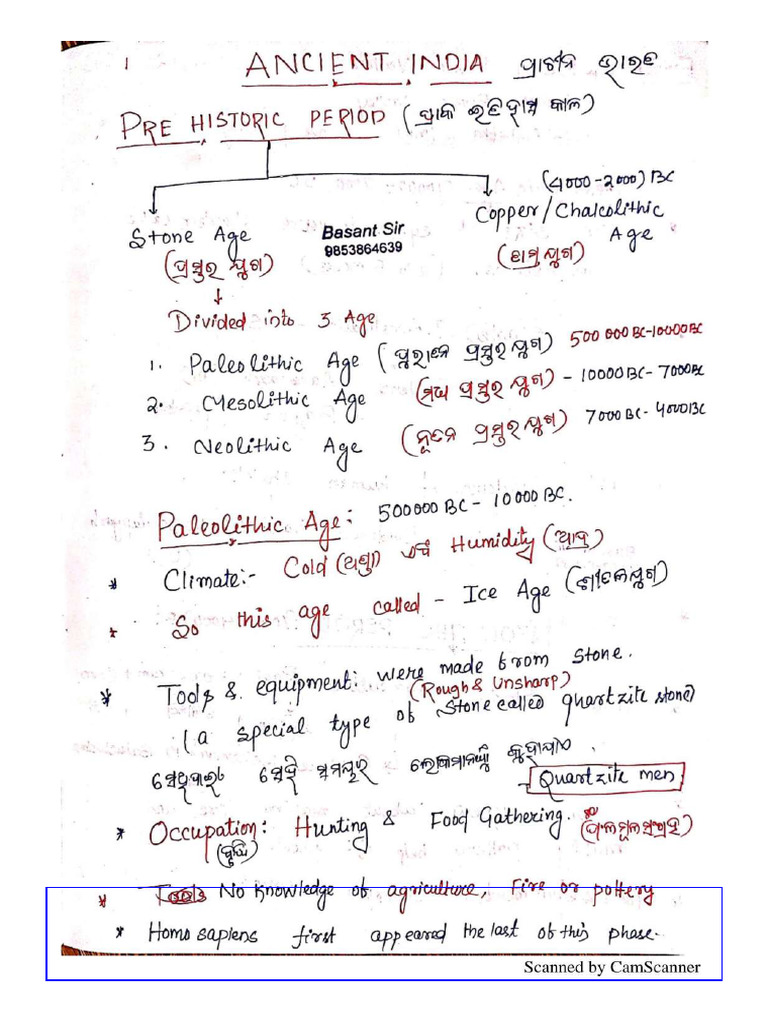 1 ANCIENT INDIA ପ୍ରାଚୀନ ଭାରତ
PRE HISTORIC PERIOD (ପ୍ରାକ ଇତିହାସ କାଳ)
(4000-2000) BC
Stone Age
Copper/Chalcolithic Age
Basant Sir
9853864639
(ପ୍ରସ୍ତର ଯୁଗ)
(ତାମ୍ର ଯୁଗ)
Divided into 3 Age
1. Paleolithic Age (ପୁରାତନ ପ୍ରସ୍ତର ଯୁଗ) 500 000 BC-10000BC
2. Mesolithic Age (ମଧ୍ୟ ପ୍ରସ୍ତର ଯୁଗ) - 10000BC- 7000BC
3. Neolithic Age (ନୂତନ ପ୍ରସ୍ତର ଯୁଗ) 7000 BC- 4000BC
Paleolithic Age: 500000BC- 10000BC.
* Climate:- Cold (ଥଣ୍ଡା) ଏବଂ Humidity (ଆର୍ଦ୍ର)
* So this age called - Ice Age (ଶୀତଳଯୁଗ)
* Tools & equipment: were made from stone.
(Rough & Unsharp)
(a special type of stone called quartzite stone)
ସେଥିପାଇଁ ସେହି ସମୟର ଲୋକମାନଙ୍କୁ କୁହାଯାଏ
Quartzite men
* Occupation: Hunting & Food Gathering. (ଫଳମୂଳ ସଂଗ୍ରହ)
(ବୃତ୍ତି)
* No knowledge of agriculture, Fire or pottery
* Homo sapiens first appeared the last of this phase.
Scanned by CamScanner